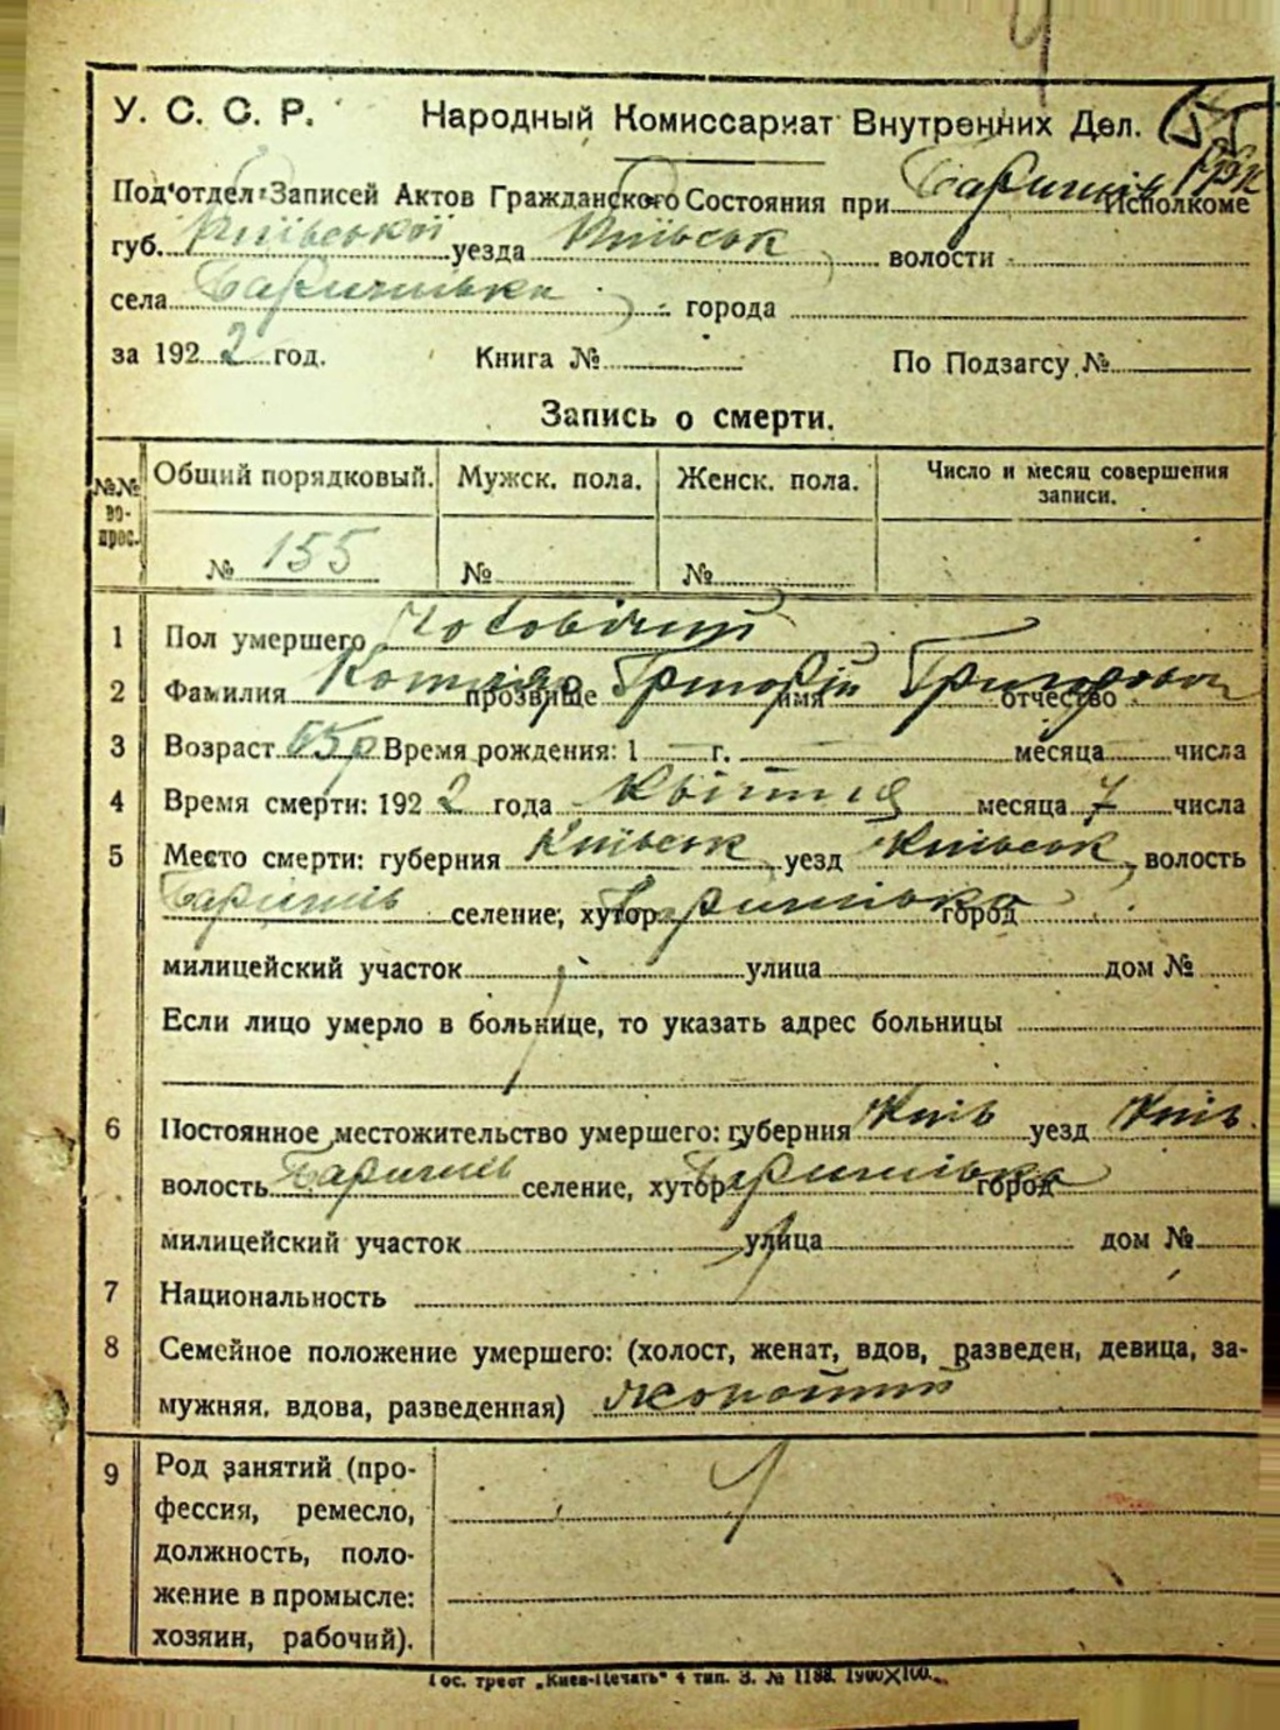 У. С. С. Р. Народный Комиссариат Внутренних Дел.
Под'отдел Записей Актов Гражданского Состояния при Баришів РВК Исполкоме
губ. Київської уезда Київськ волости
села Баришівки города
за 1922 год. Книга № По Подзагсу №
Запись о смерти.
№№ вопрос. Общий порядковый. Мужск. пола. Женск. пола. Число и месяц совершения
записи.
№ 155 № №
1 Пол умершего Чоловічий
2 Фамилия Котляр прозвище Григорій имя Григорович отчество
3 Возраст 65 р Время рождения: 1 — г. — месяца числа
4 Время смерти: 1922 года Квітня месяца 7 числа
5 Место смерти: губерния Київськ уезд Київськ волость
Баришів селение, хутор Баришівка город
милицейский участок улица дом №
Если лицо умерло в больнице, то указать адрес больницы
6 Постоянное местожительство умершего: губерния Київ уезд Київ
волость Баришів селение, хутор Баришівка город
милицейский участок улица дом №
7 Национальность
8 Семейное положение умершего: (холост, женат, вдов, разведен, девица, за-
мужняя, вдова, разведенная) жонатий
9 Род занятий (про-
фессия, ремесло,
должность, поло-
жение в промысле:
хозяин, рабочий).
Гос. трест „Киев-Печать" 4 тип. З. № 1188. 1900×100.